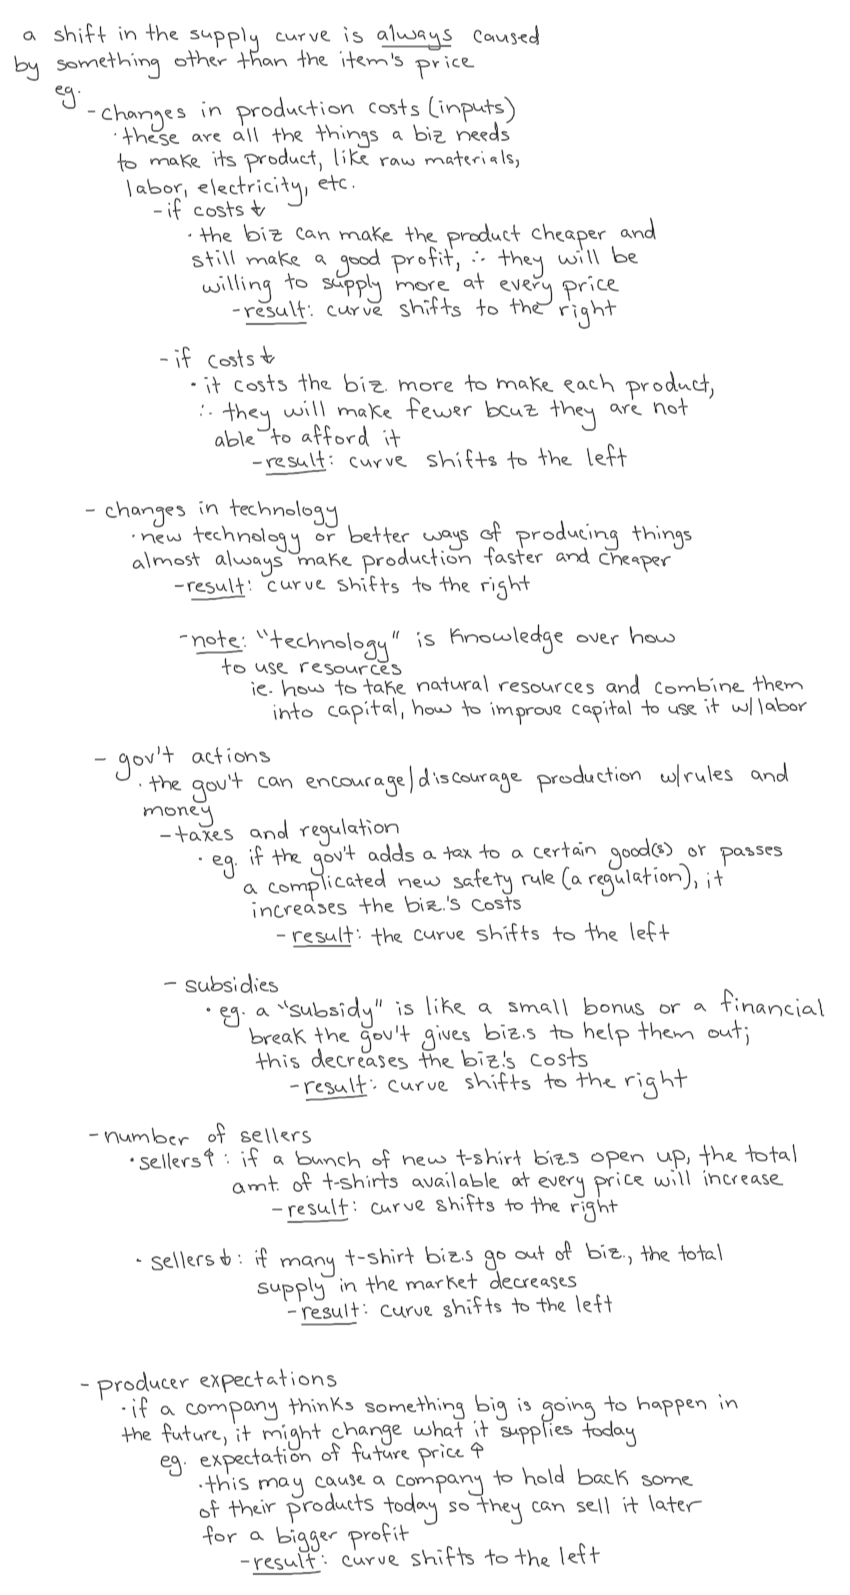 a shift in the supply curve is always caused
by something other than the item's price
eg.
- changes in production costs (inputs)
· these are all the things a biz needs
to make its product, like raw materials,
labor, electricity, etc.
- if costs ↓
· the biz can make the product cheaper and
still make a good profit, ∴ they will be
willing to supply more at every price
- result: curve shifts to the right
- if costs ↓
· it costs the biz. more to make each product,
∴ they will make fewer bcuz they are not
able to afford it
- result: curve shifts to the left
- changes in technology
· new technology or better ways of producing things
almost always make production faster and cheaper
- result: curve shifts to the right
- note: "technology" is knowledge over how
to use resources
ie. how to take natural resources and combine them
into capital, how to improve capital to use it w/labor
- gov't actions
· the gov't can encourage/discourage production w/rules and
money
- taxes and regulation
· eg. if the gov't adds a tax to a certain good(s) or passes
a complicated new safety rule (a regulation), it
increases the biz.'s costs
- result: the curve shifts to the left
- subsidies
· eg. a "subsidy" is like a small bonus or a financial
break the gov't gives biz.s to help them out;
this decreases the biz.'s costs
- result: curve shifts to the right
- number of sellers
· sellers ↑: if a bunch of new t-shirt biz.s open up, the total
amt. of t-shirts available at every price will increase
- result: curve shifts to the right
· sellers ↓: if many t-shirt biz.s go out of biz., the total
supply in the market decreases
- result: curve shifts to the left
- producer expectations
· if a company thinks something big is going to happen in
the future, it might change what it supplies today
eg. expectation of future price ↑
· this may cause a company to hold back some
of their products today so they can sell it later
for a bigger profit
- result: curve shifts to the left